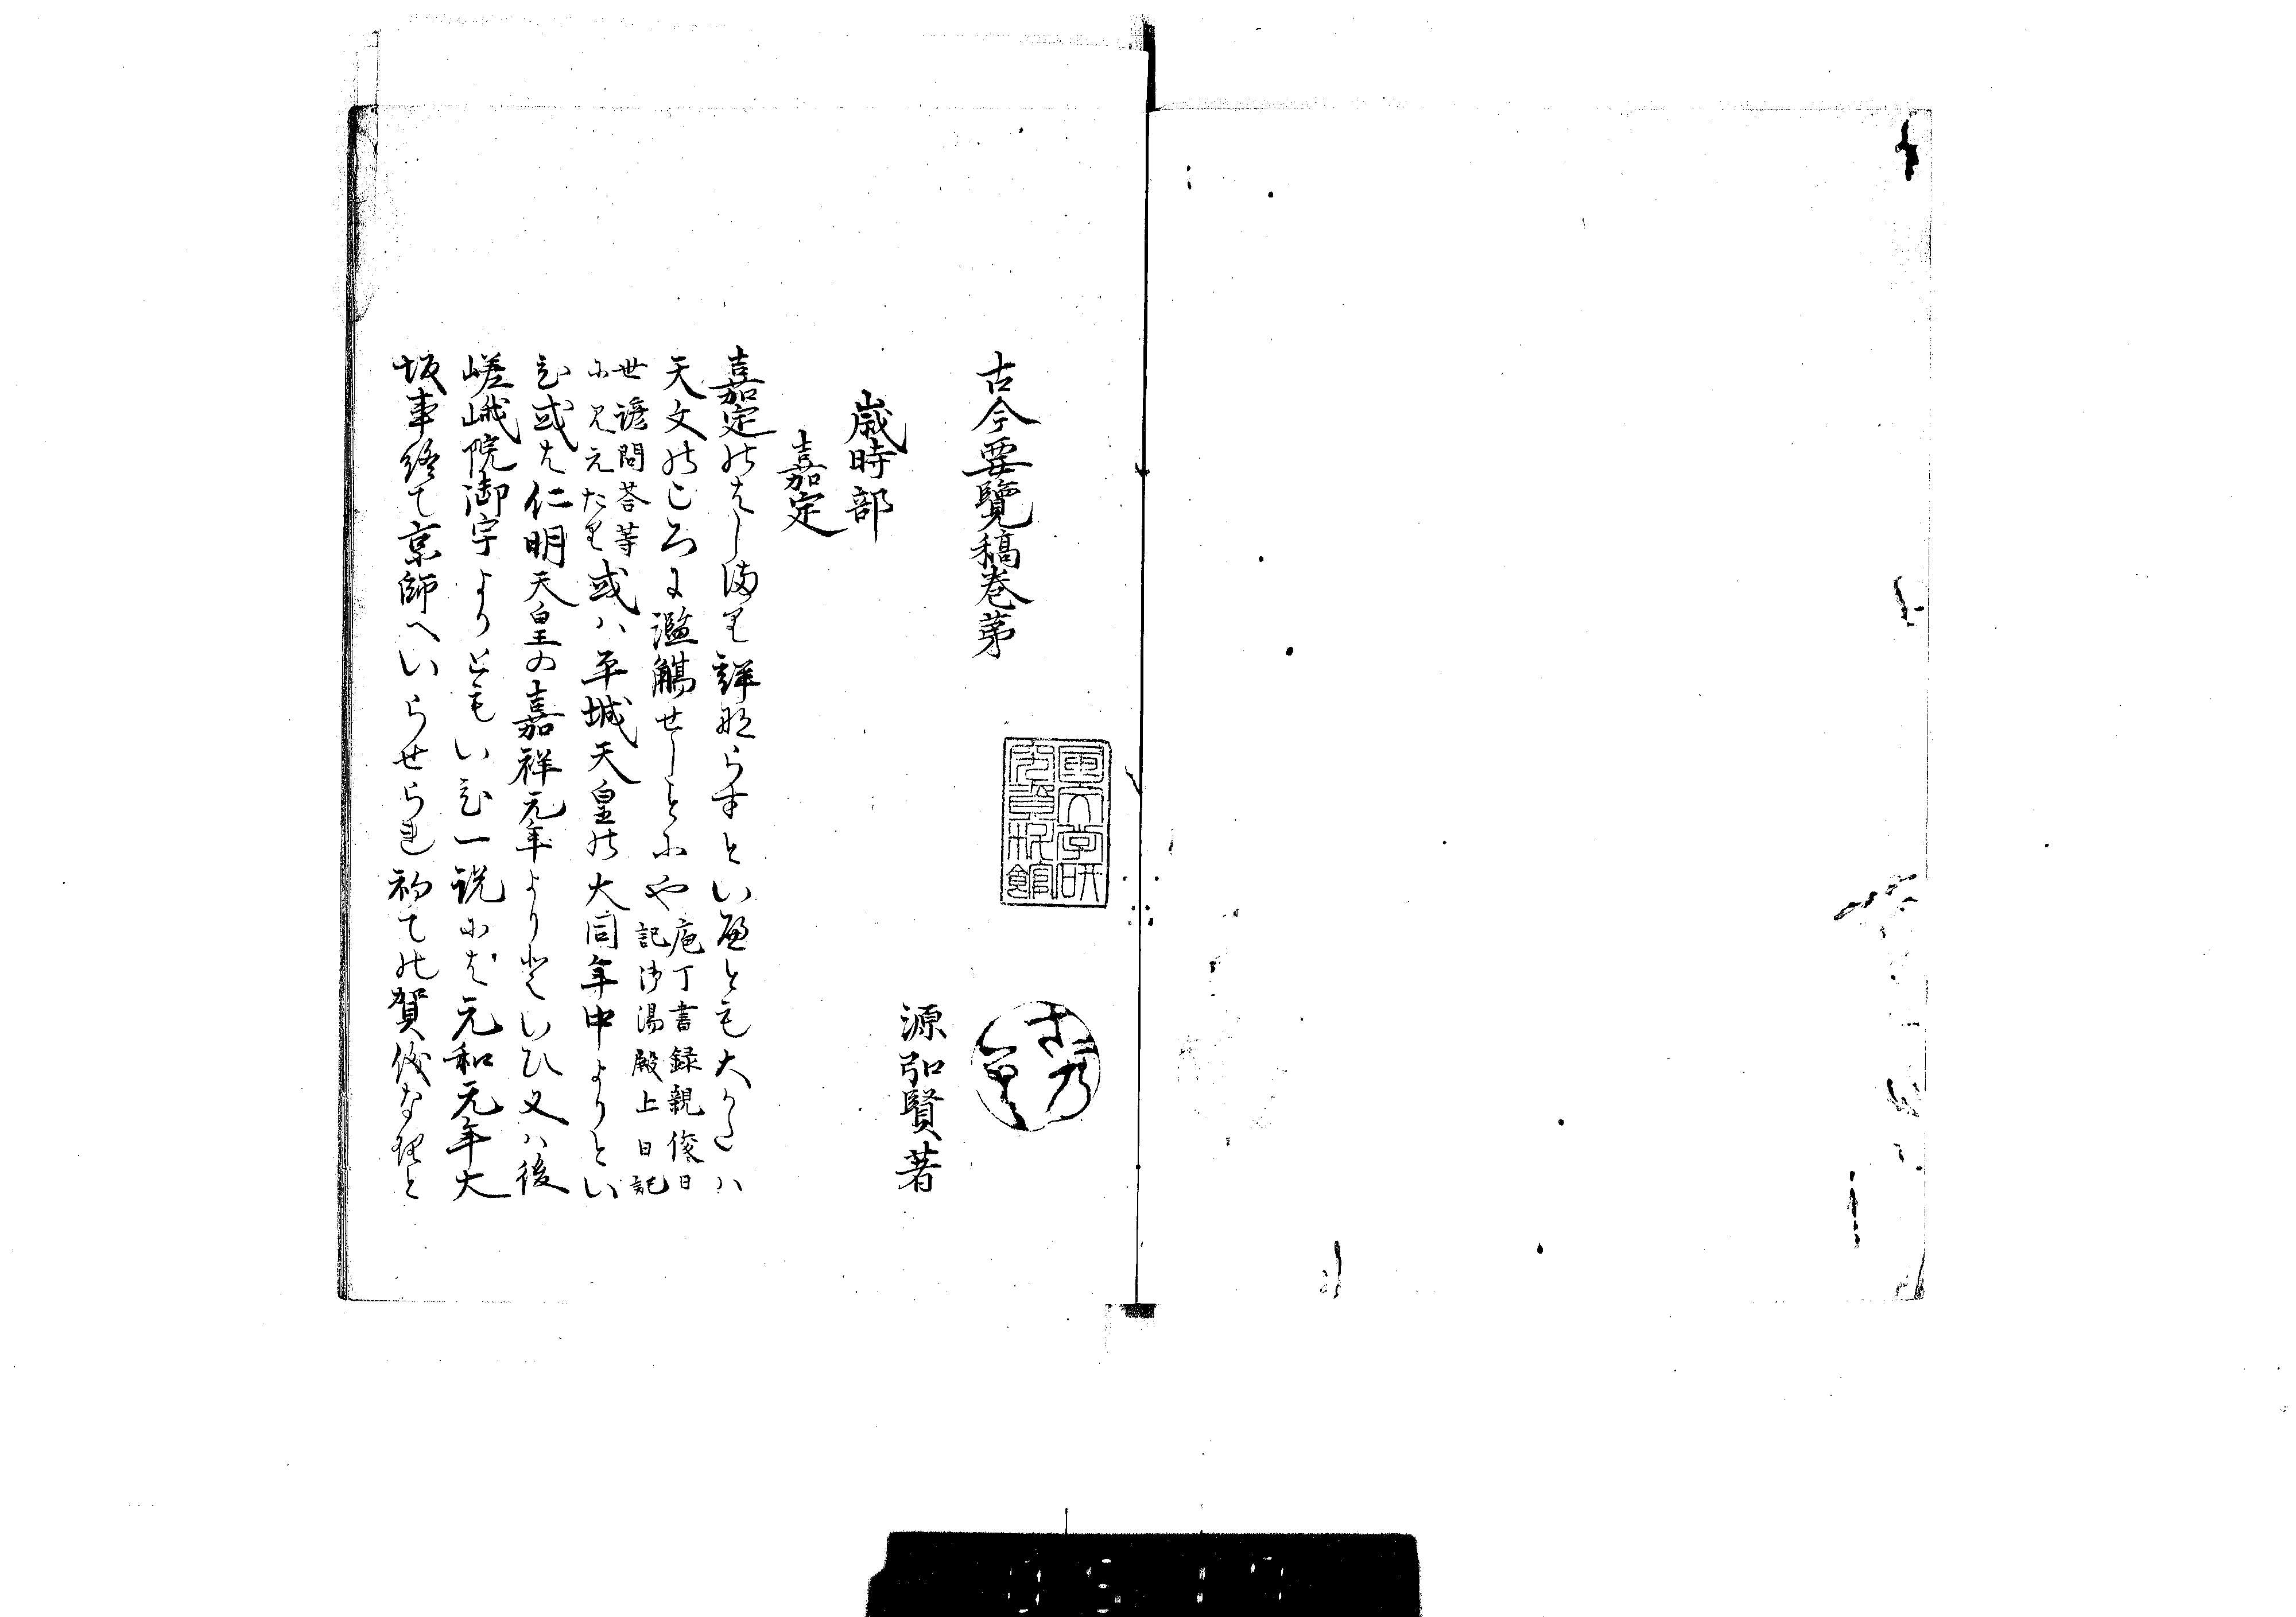 古今要覽稿巻第
源弘賢著
歳時部
嘉定
嘉定のはしまり詳ならすといへとも大かたハ
天文のころに濫觴せしとにや庖丁書録親俊日
記御湯殿上日記
世諺問答等
にみえたり或ハ平城天皇の大同年中よりとい
ひ或は仁明天皇の嘉祥元年よりといひ又ハ後
嵯峨院御宇よりともいひ一説にハ元和元年大
坂事終て京師へいらせられ初ての賀儀なりと